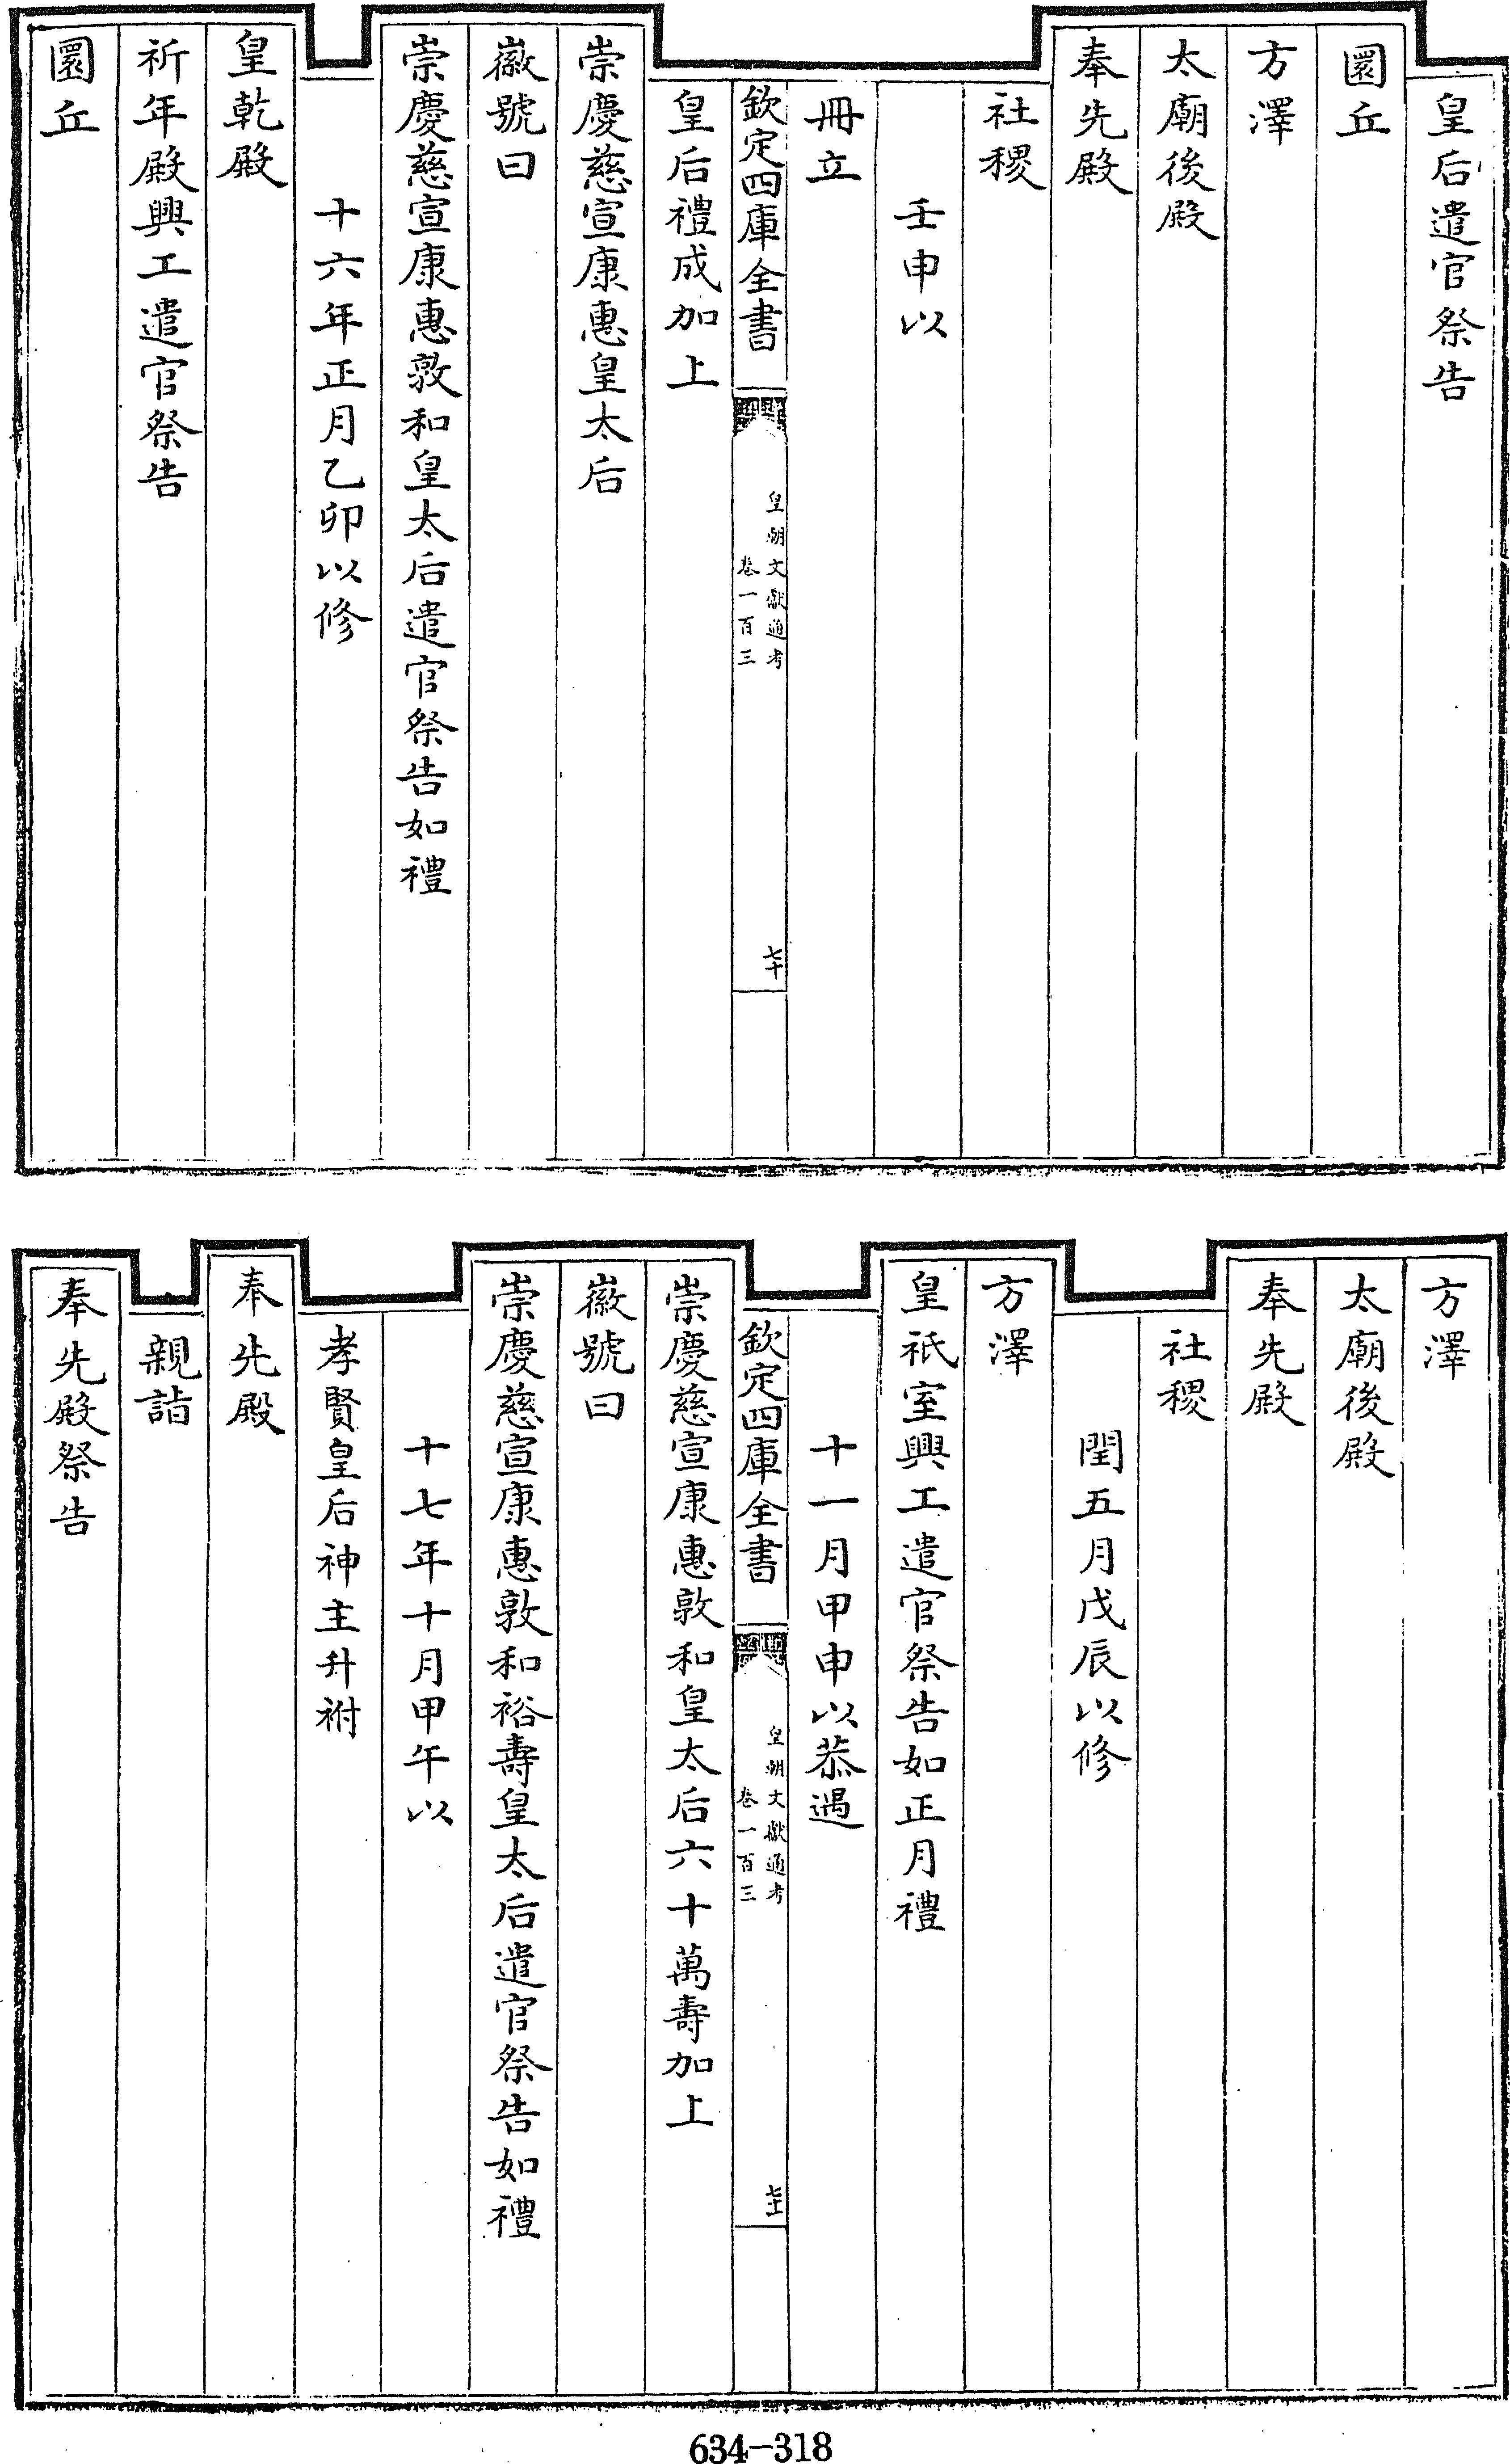 皇后遣官祭告
圜丘
方澤
太廟後殿
奉先殿
社稷
壬申以
冊立
欽定四庫全書
皇朝文獻通考
卷一百三
七十
皇后禮成加上
崇慶慈宣康惠皇太后
徽號曰
崇慶慈宣康惠敦和皇太后遣官祭告如禮
十六年正月乙卯以修
皇乾殿
祈年殿興工遣官祭告
圜丘
方澤
太廟後殿
奉先殿
社稷
閏五月戊辰以修
方澤
皇祇室興工遣官祭告如正月禮
十一月甲申以恭遇
欽定四庫全書
皇朝文獻通考
卷一百三
七十一
崇慶慈宣康惠敦和皇太后六十萬壽加上
徽號曰
崇慶慈宣康惠敦和裕壽皇太后遣官祭告如禮
十七年十月甲午以
孝賢皇后神主升祔
奉先殿
親詣
奉先殿祭告
634-318